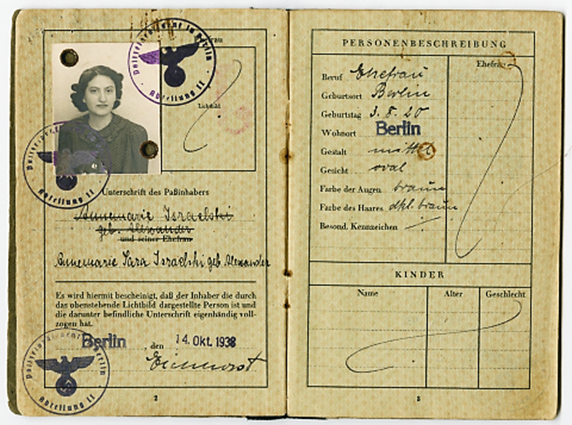 Polizeipräsident in Berlin
Abteilung II
Ehefrau
Lichtbild
Polizeipräsident in Berlin
Abteilung II
Unterschrift des Paßinhabers
Annemarie Israelski
geb. Alexander
und seiner Ehefrau
Annemarie Sara Israelski geb. Alexander
Es wird hiermit bescheinigt, daß der Inhaber die durch
das obenstehende Lichtbild dargestellte Person ist und
die darunter befindliche Unterschrift eigenhändig voll-
zogen hat.
Berlin, den 14. Okt. 1938
Polizeipräsident in Berlin
Abteilung II
2
PERSONENBESCHREIBUNG
Ehefrau
Beruf Ehefrau
Geburtsort Berlin
Geburtstag 3.8.20
Wohnort Berlin
Gestalt mittel
Gesicht oval
Farbe der Augen braun
Farbe des Haares dkl. braun
Besond. Kennzeichen
KINDER
Name Alter Geschlecht
3